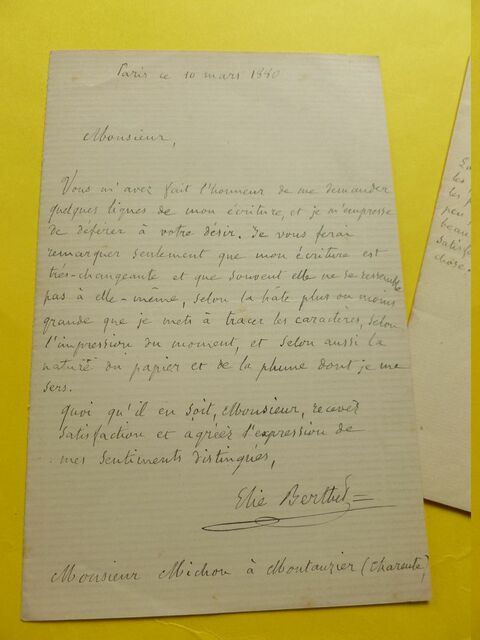 Paris ce 10 mars 1880
Monsieur,
Vous m'avez fait l'honneur de me demander
quelques lignes de mon écriture, et je m'empresse
de déférer à votre désir. Je vous ferai
remarquer seulement que mon écriture est
très-changeante et que souvent elle ne se ressemble
pas à elle-même, selon la hâte plus ou moins
grande que je mets à tracer les caractères, selon
l'impression du moment, et selon aussi la
nature du papier et de la plume dont je me
sers.
Quoi qu'il en soit, Monsieur, recevez
satisfaction et agréez l'expression de
mes sentiments distingués,
Elie Berthet
Monsieur Michon à Montauzier (Charente)
les
les
peu
beau
satisf
chose.